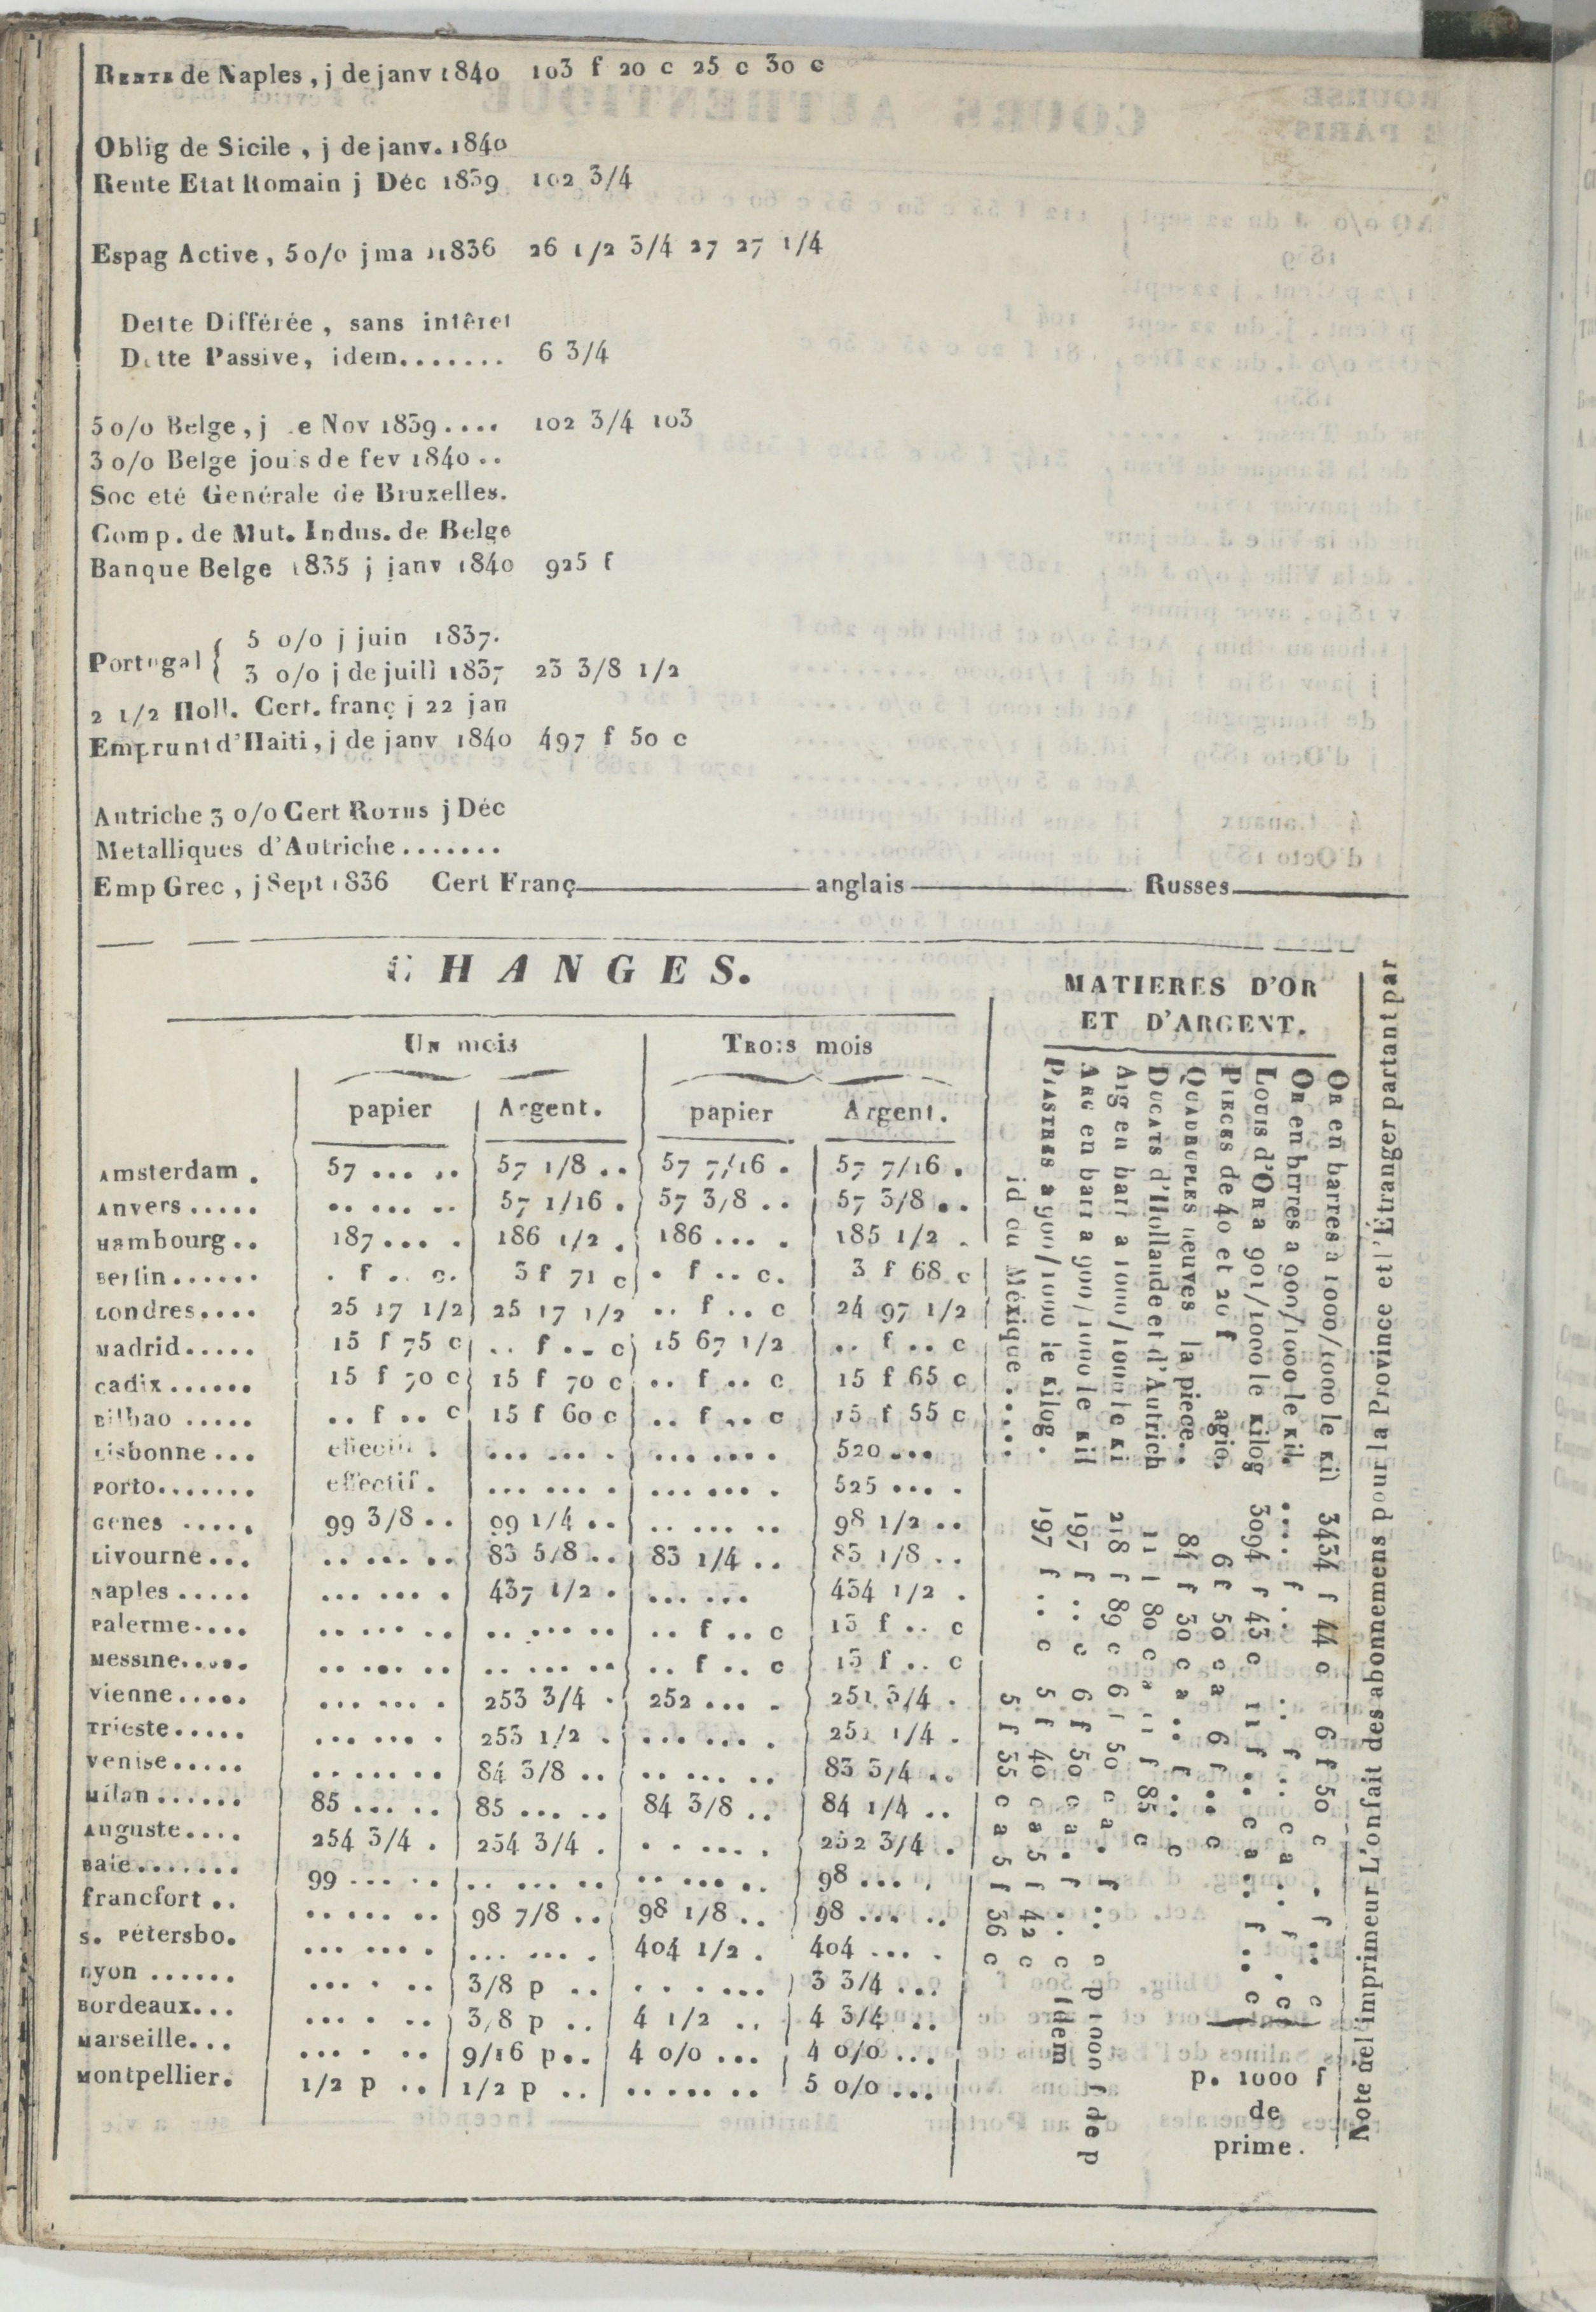 RENTE de Naples, j de janv 1840 103 f 20 c 25 c 30 c
Oblig de Sicile, j de janv. 1840
Rente Etat Romain j Déc 1839 102 3/4
Espag Active, 5 o/o j ma 1836 26 1/2 3/4 27 27 1/4
Dette Différée, sans intêret
Dette Passive, idem....... 6 3/4
5 o/o Belge, j e Nov 1839.... 102 3/4 103
3 o/o Belge jouis de fev 1840..
Soc eté Genérale de Bruxelles.
Comp. de Mut. Indus. de Belge
Banque Belge 1835 j janv 1840 925 f
Portugal { 5 o/o j juin 1837.
3 o/o j de juill 1837 23 3/8 1/2
2 1/2 Holl. Cert. franç j 22 jan
Emprunt d'Haiti, j de janv 1840 497 f 50 c
Autriche 3 o/o Cert ROTHS j Déc
Metalliques d'Autriche.......
Emp Grec, j Sept 1836 Cert Franç anglais Russes
CHANGES.
UN mois TROIS mois
papier Argent. papier Argent.
Amsterdam . 57 ... .. 57 1/8 .. 57 7/16 . 57 7/16 .
Anvers ..... .. ... .. 57 1/16 . 57 3/8 .. 57 3/8 ..
Hambourg .. 187 ... . 186 1/2 . 186 ... . 185 1/2 .
Berlin ...... . f .. c. 3 f 71 c . f .. c. 3 f 68 c
Londres.... 25 17 1/2 25 17 1/2 .. f .. c 24 97 1/2
Madrid..... 15 f 75 c .. f .. c 15 67 1/2 .. f .. c
Cadix ...... 15 f 70 c 15 f 70 c .. f .. c 15 f 65 c
Bilbao ..... .. f .. c 15 f 60 c .. f .. c 15 f 55 c
Lisbonne ... effectif . ... ... . ... .... 520 ...
Porto....... effectif . ... ... . ... ... . 525 ... .
Genes ..... 99 3/8 .. 99 1/4 .. .. ... .. 98 1/2 ..
Livourne... .. ... .. 83 5/8 .. 83 1/4 .. 83 1/8 ..
Naples ..... ... ... . 437 1/2 . ... ... 434 1/2 .
Palerme.... .. ... .. .. ... .. .. f .. c 13 f .. c
Messine..... .. ... .. .. ... .. .. f .. c 13 f .. c
Vienne..... ... ... . 253 3/4 . 252 ... . 251 3/4 .
Trieste..... ... ... . 253 1/2 . ... ... . 251 1/4 .
Venise..... .. ... .. 84 3/8 .. .. ... .. 83 3/4 ..
Milan ...... 85 ... .. 85 ... .. 84 3/8 .. 84 1/4 ..
Auguste.... 254 3/4 . 254 3/4 . . . ... . 252 3/4 .
Bale....... 99 ... .. .. ... .. .. ... .. 98 ... .
francfort .. .. ... .. 98 7/8 .. 98 1/8 .. 98 ... ..
S. Pétersbo. ... ... . ... ... . 404 1/2 . 404 ... .
Lyon ...... ... . .. 3/8 p .. . . . ... 3 3/4 ...
Bordeaux... ... . .. 3/8 p .. 4 1/2 .. 4 3/4 ..
Marseille... ... . .. 9/16 p.. 4 o/o ... 4 o/o ...
Montpellier. 1/2 p .. 1/2 p .. .. ... .. 5 o/o ...
MATIERES D'OR
ET D'ARGENT.
OR en barres à 1000/1000 le Kil 3434 f 44 c 6 f 50 c . f .. c
OR en brres a 900/1000 le Kil. .... f .. .. f .. c a .. f .. c
LOUIS d'OR a 901/1000 le Kilog 3094 f 43 c 11 f .. c a .. f .. c
PIECES de 40 et 20 f agio. 6 f 50 c a 6 f .. c
QUADRUPLES neuves la piece.. 84 f 30 c a .. f .. c
DUCATS d'Hollande et d'Autrich 11 f 80 c a 11 f 85 c
Arg en barr a 1000/1000 le Ki 218 f 89 c 6 f 50 c a . f .. c p 1000 f de p
ARG en barr a 900/1000 le Kil 197 f .. c 6 f 50 c a . f .. c idem
PIASTRES a 900/1000 le Kilog. 197 f .. c 5 f 40 c a 5 f 42 c
id du Méxique ..... 5 f 35 c a 5 f 36 c
p. 1000 f
de
prime.
Note del imprimeur L'on fait des abonnemens pour la Province et l'Étranger partant par